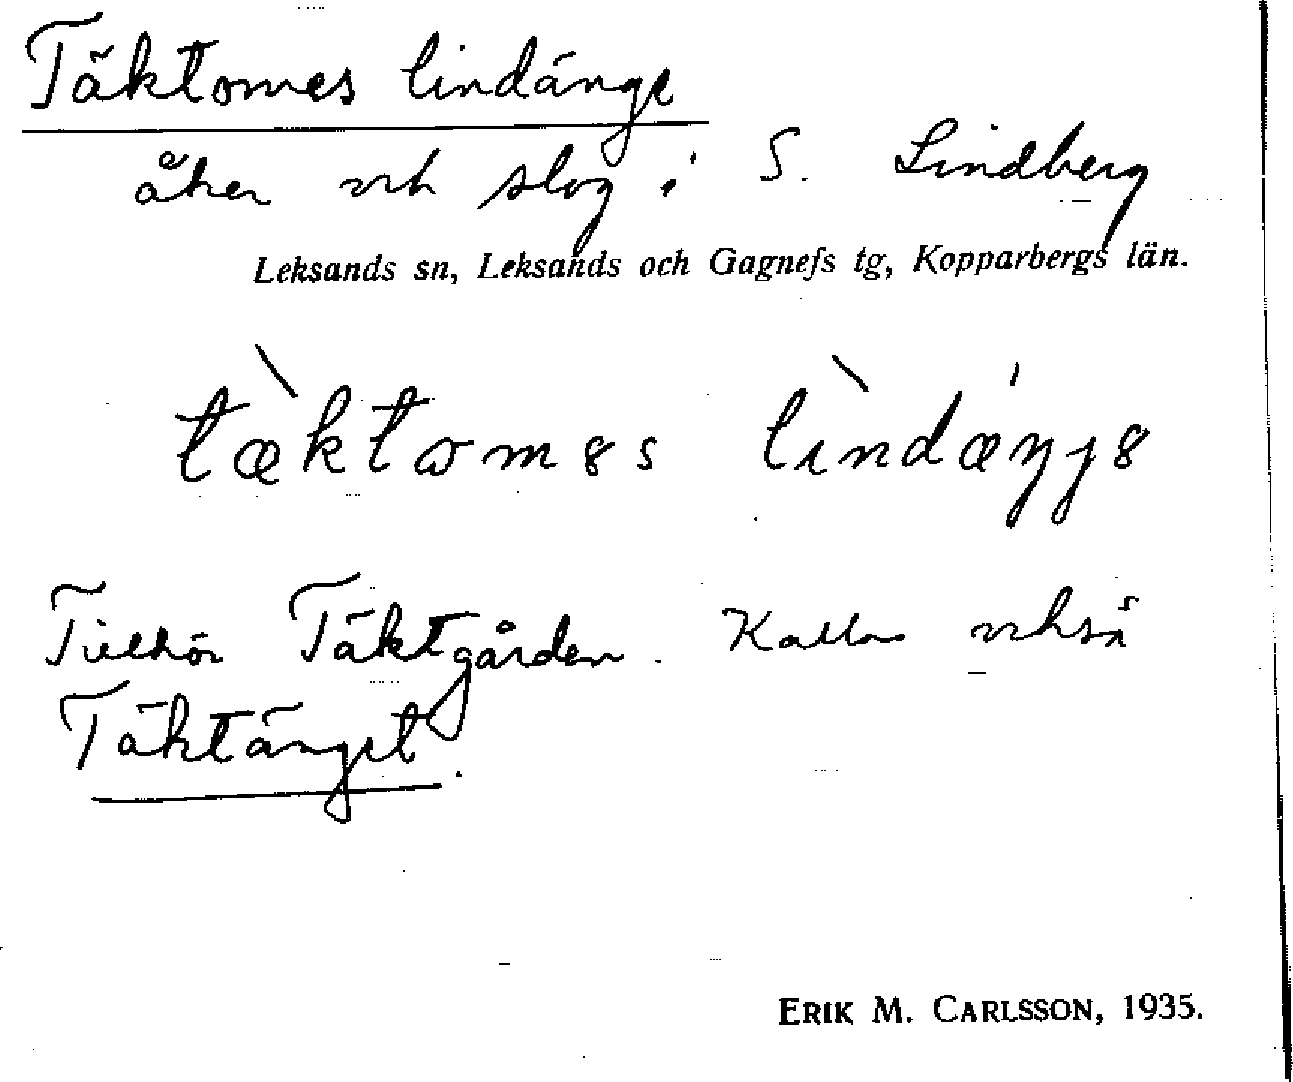 Täktomes lindänge
åker och slog i S. Lindberg
Leksands sn, Leksands och Gagnefs tg, Kopparbergs län.
tæ̀ktomɞs lìndæ̀ŋjɞ
Tillhör Täktgården. Kallas också
Täktänget.
ERIK M. CARLSSON, 1935.